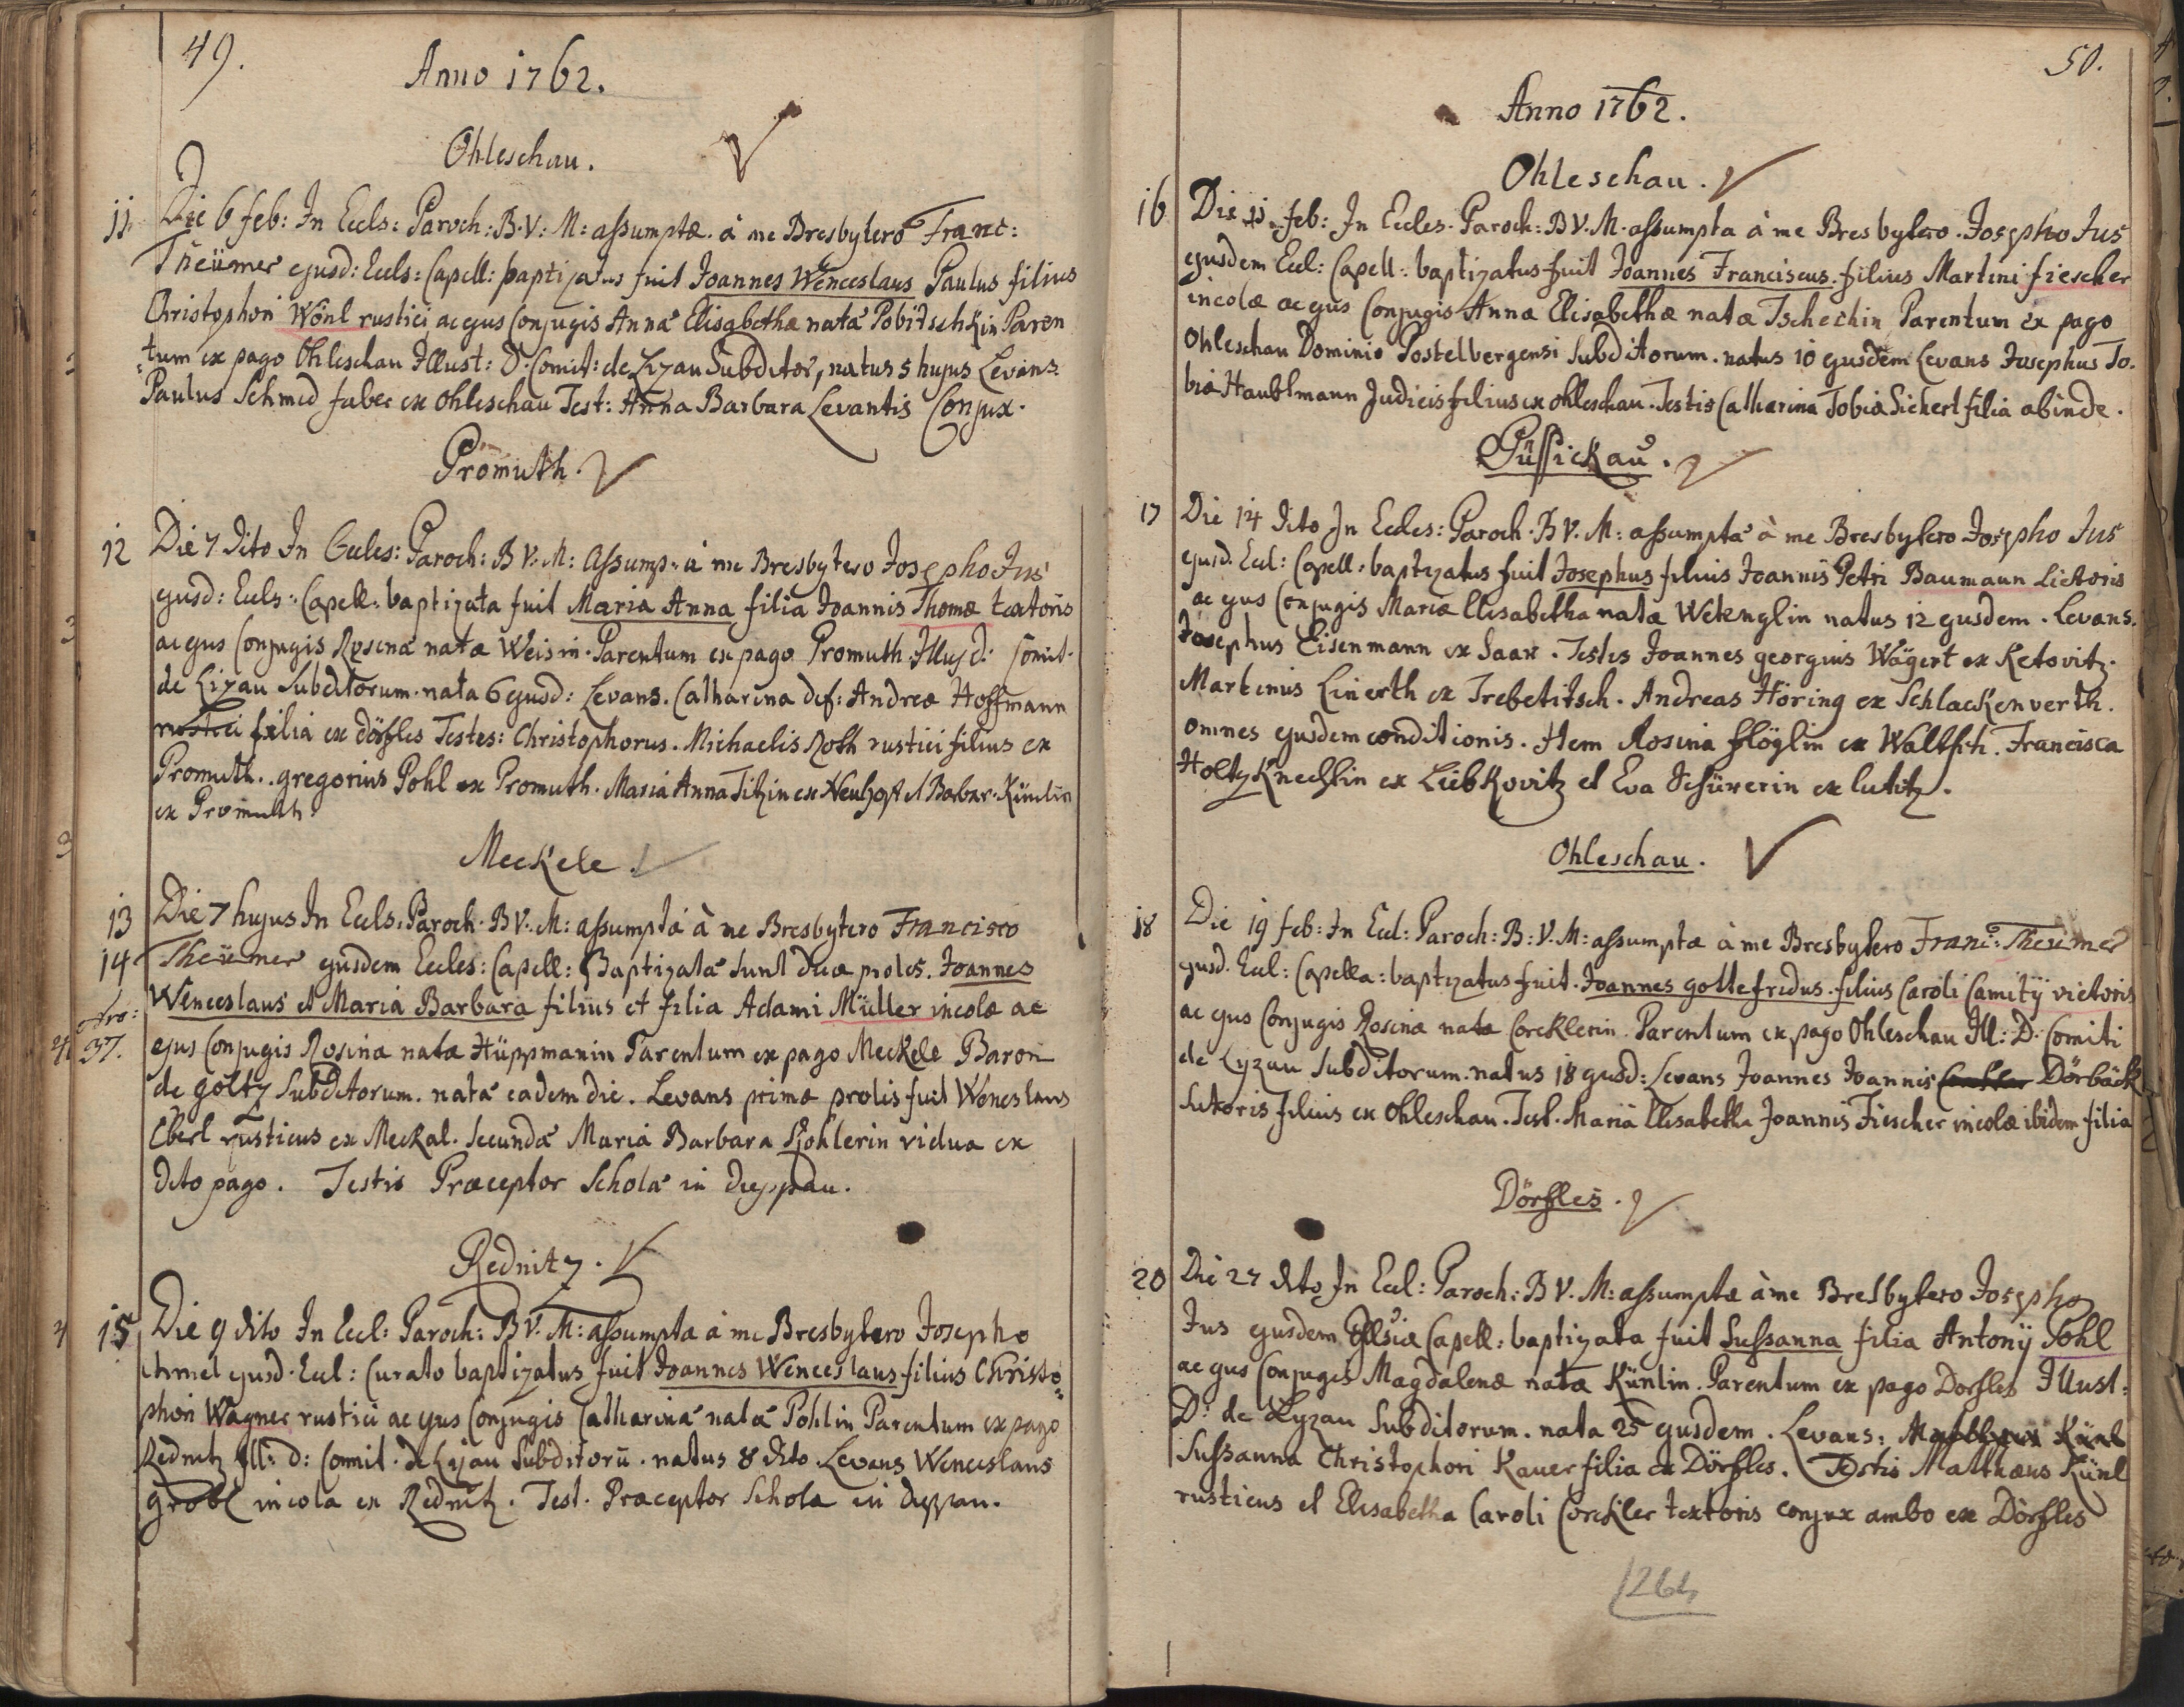 49.
Anno 1762.
Ohleschau.
11 Die 6 feb: In Eccls: Paroch: B. V: M: assumptæ. à me Presbytero Franc:
Theümer ejusd: Eccls: Capell: baptizatus fuit Joannes Wenceslaus Paulus filius
Christophori Wönl rustici ac ejus Conjugis Anna Elisabethæ nata Pobitschkin Paren
tum ex pago Ohleschau Illust: D. Comit: de Lizau Subditor, natus 5 hujus Levans
Paulus Schmid faber ex ohleschau Test: Anna Barbara Levantis Conjux.
Promuth.
12 Die 7 dito In Eccles: Paroch: B V: M: Assump: à me Presbytero Josepho Jus
ejusd: Eccls: Capell: baptizata fuit Maria Anna filia Joannis Thomæ textoris
ac ejus Conjugis Rosina nata Weisin. Parentum ex pago Promuth Comit.
de Lizau Subditorum. nata 6 ejusd: Levans. Catharina def: Andreæ Hoffmann
rustici filia ex dörfles Testes: Christophorus. Michaelis Roth rustici filius ex
Promuth. gregorius Pohl ex Promuth. Maria Anna Titzin ex Neuhof et Barbar. Künlin
ex Promuth.
Meckele.
13 Die 7 hujus In Eccls. Paroch. B V. M: assumpta à me Presbytero Francisco
14 Theümer ejusdem Eccles: Capell: Baptizata sunt duæ proles. Joannes
Wenceslaus et Maria Barbara filius et filia Adami Müller incolæ ac
37. ejus Conjugis Rosina nata Hüppmanin Parentum ex pago Meckele Baron
de goltz Subditorum. nata eadem die. Levans primæ prolis fuit Wenceslaus
Eberl rusticus ex Meckal. secunda Maria Barbara Kohlerin vidua ex
dito pago. Testis Præceptor Schola in duppau.
Rednitz.
15 Die 9 dito In Eccl: Paroch: B V. M: assumpta à me Presbytero Josepho
ejusd. Eccl: Curato baptizatus fuit Joannes Wenceslaus filius Christo
phori Wagner rustici ac ejus Conjugis Catharina nata Pohlin Parentum ex pago
Rednitz Ill: D: Comit. de Lizau Subditorū. natus 8 dito Levans Wenceslaus
Gröbl incola ex Rednitz. Test. Præceptor Schola in duppau.
50.
Anno 1762.
Ohleschau.
16 Die 11. feb: In Eccles. Paroch: B V. M. assumpta à me Presbytero. Josepho Jus
ejusdem Eccl: Capell: baptizatus fuit Joannes Franciscus. filius Martini fiescher
incolæ ac ejus Conjugis Anna Elisabethæ nata Tschechin Parentum ex pago
Ohleschau Dominio Postelbergensi Subditorum. natus 10 ejusdem Levans Josephus To.
biæ Haubtmann Judicis filius ex ohleschau. Testis Catharina Tobiæ Sichert filia abinde.
Püssickau.
17 Die 14 dito In Eccles: Paroch. B V. M: assumpta à me Presbytero Josepho Jus
ejusd. Eccl: Capell: baptizatus fuit Josephus filius Joannis Petri Baumann Lictoris
ac ejus Conjugis Mariæ Elisabetha nata Wetenglin natus 12 ejusdem. Levans.
Josephus Eisenmann ex Saax. Testes Joannes georgius Wägert ex Ketovitz.
Martinus Linerth ex Trebetitsch. Andreas Höring ex Schlackenverth.
omnes ejusdem conditionis. Item Rosina flöglin ex Waltsch. Francisca
Holtzknechtin ex Liebkovitz et Eva Schürerin ex lutitz.
Ohleschau.
18 Die 19 feb: In Eccl: Paroch: B: V. M: assumptæ à me Presbytero Franc: Theümer
ejusd. Eccl: Capella: baptizatus fuit. Joannes gottefridus. filius Caroli Camity victoris
ac ejus Conjugis Rosinæ nata Corcklerin. Parentum ex pago Ohleschau Ill: D: Comiti
de Lyzau Subditorum. natus 18 ejusd: Levans Joannes Joannis Dörbäck
sutoris filius ex Ohleschau. Test. Maria Elisabetha Joannis Fiescher incolæ ibidem filia
Dörfles.
20 Die 27 dito In Eccl: Paroch: B V. M: assumptæ à me Presbytero Josepho
Jus ejusdem Capell: baptizata fuit Sussanna filia Antonij Pohl
ac ejus Conjugis Magdalenæ nata Künlin. Parentum ex pago Dorfles Illust:
D: de Lyzau Subditorum. nata 25 ejusdem. Levans: Mathæus Künl
Sussanna Christophori Kauer filia ex Dörfles. Testis Matthæus Künl
rusticus et Elisabetha Caroli Corckler textoris conjux ambo ex Dörfles
126